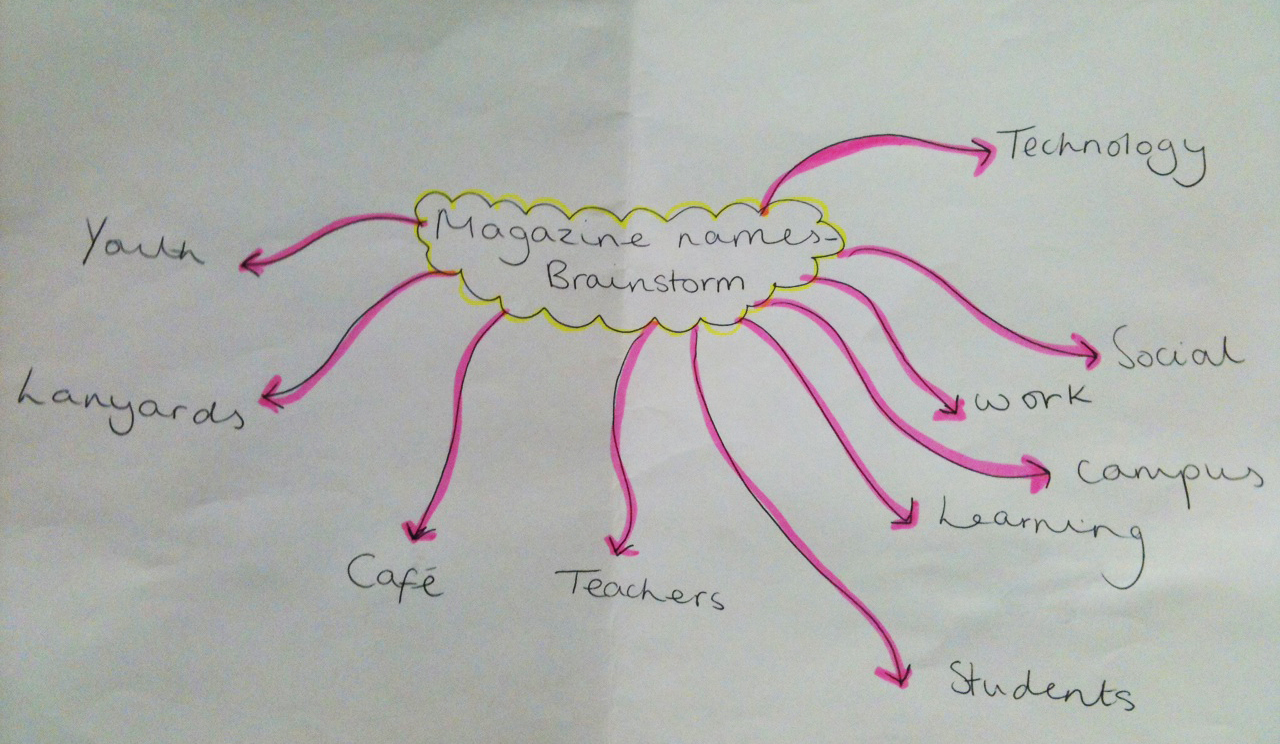 Technology
Magazine names-
Brainstorm
Youth
Social
Lanyards
work
campus
Learning
Café
Teachers
Students